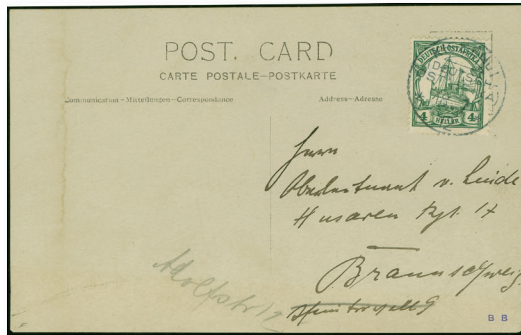 POST. CARD
CARTE POSTALE—POSTKARTE
Communication - Mitteilungen - Correspondance
Address - Adresse
DEUTSCH-OSTAFRIKA
4 HELLER 4
Herrn
Oberleutnant v. Linde
Husaren Rgt. 17
Braunschweig
Adolfstr
B B